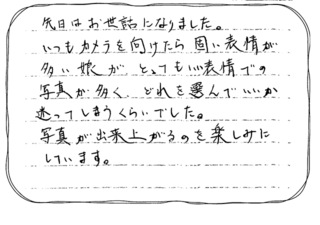 先日はお世話になりました。
いつもカメラを向けたら固い表情が
多い娘が、とってもいい表情での
写真が多く、どれを選んでいいか
迷ってしまうくらいでした。
写真が出来上がるのを楽しみに
しています。